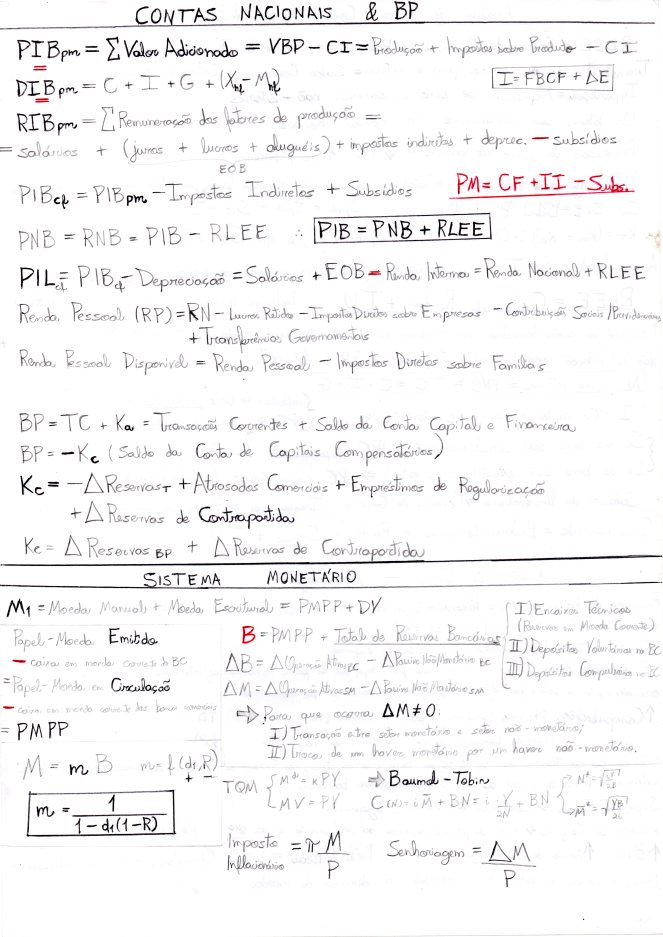 CONTAS NACIONAIS & BP
PIBpm = ∑ Valor Adicionado = VBP – CI = Produção + Impostos sobre Produto – CI
DIBpm = C + I + G + (Xnf – Mnf)
I = FBCF + ΔE
RIBpm = ∑ Remuneração dos fatores de produção =
= salários + (juros + lucros + aluguéis) + impostos indiretos + deprec. – subsídios
EOB
PIBcf = PIBpm – Impostos Indiretos + Subsídios
PM = CF + II – Subs.
PNB = RNB = PIB – RLEE ∴ PIB = PNB + RLEE
PILcf = PIBcf – Depreciação = Salários + EOB – Renda Interna = Renda Nacional + RLEE
Renda Pessoal (RP) = RN – Lucros Retidos – Impostos Diretos sobre Empresas – Contribuições Sociais/Previdenciárias
+ Transferências Governamentais
Renda Pessoal Disponível = Renda Pessoal – Impostos Diretos sobre Famílias
BP = TC + Ka = Transações Correntes + Saldo da Conta Capital e Financeira
BP = – Kc (Saldo da Conta de Capitais Compensatórios)
Kc = – Δ Reservas T + Atrasados Comerciais + Empréstimos de Regularização
+ Δ Reservas de Contrapartida
Kc = Δ Reservas BP + Δ Reservas de Contrapartida
SISTEMA MONETÁRIO
M1 = Moeda Manual + Moeda Escritural = PMPP + DV
Papel-Moeda Emitido
– caixa em moeda corrente do BC
= Papel-Moeda em Circulação
– caixa em moeda corrente dos bancos comerciais
= PMPP
M = m B m = f(d1, R)
+ –
m = 1
1 – d1(1 – R)
B = PMPP + Total de Reservas Bancárias
I) Encaixes Técnicos
(Reservas em Moeda Corrente)
II) Depósitos Voluntários no BC
III) Depósitos Compulsórios no BC
ΔB = Δ Operação Ativas BC – Δ Passivo Não Monetário BC
ΔM = Δ Operação Ativas SM – Δ Passivo Não Monetário SM
⇒ Para que ocorra ΔM ≠ 0.
I) Transação entre setor monetário e setor não-monetário;
II) Troca de um haver monetário por um haver não-monetário.
TQM { Md = κPY
MV = PY
⇒ Baumol-Tobin
C(N) = i M̄ + BN = i Y/2N + BN
N* = √iY/2B
M̄* = √YB/2i
Imposto Inflacionário = π M/P
Senhoriagem = ΔM/P